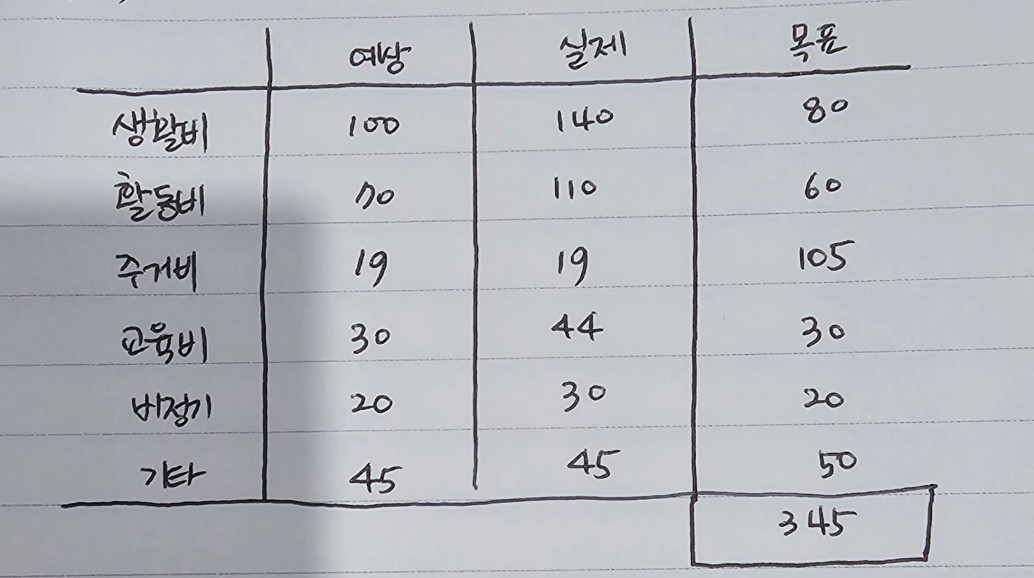 예상 실제 목표
생활비 100 140 80
활동비 70 110 60
주거비 19 19 105
교육비 30 44 30
비정기 20 30 20
기타 45 45 50
345